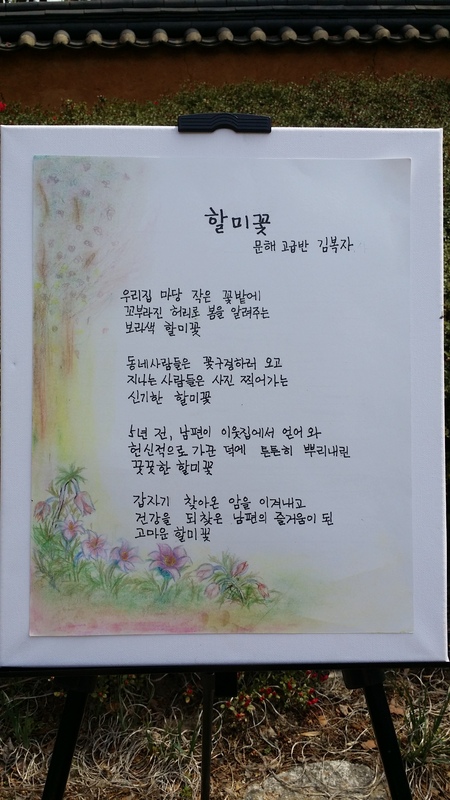 할미꽃
문해 고급반 김복자
우리집 마당 작은 꽃밭에
꼬부라진 허리로 봄을 알려주는
보라색 할미꽃
동네사람들은 꽃구경하러 오고
지나는 사람들은 사진 찍어가는
신기한 할미꽃
5년 전, 남편이 이웃집에서 얻어와
헌신적으로 가꾼 덕에 튼튼히 뿌리내린
꿋꿋한 할미꽃
갑자기 찾아온 암을 이겨내고
건강을 되찾은 남편의 즐거움이 된
고마운 할미꽃